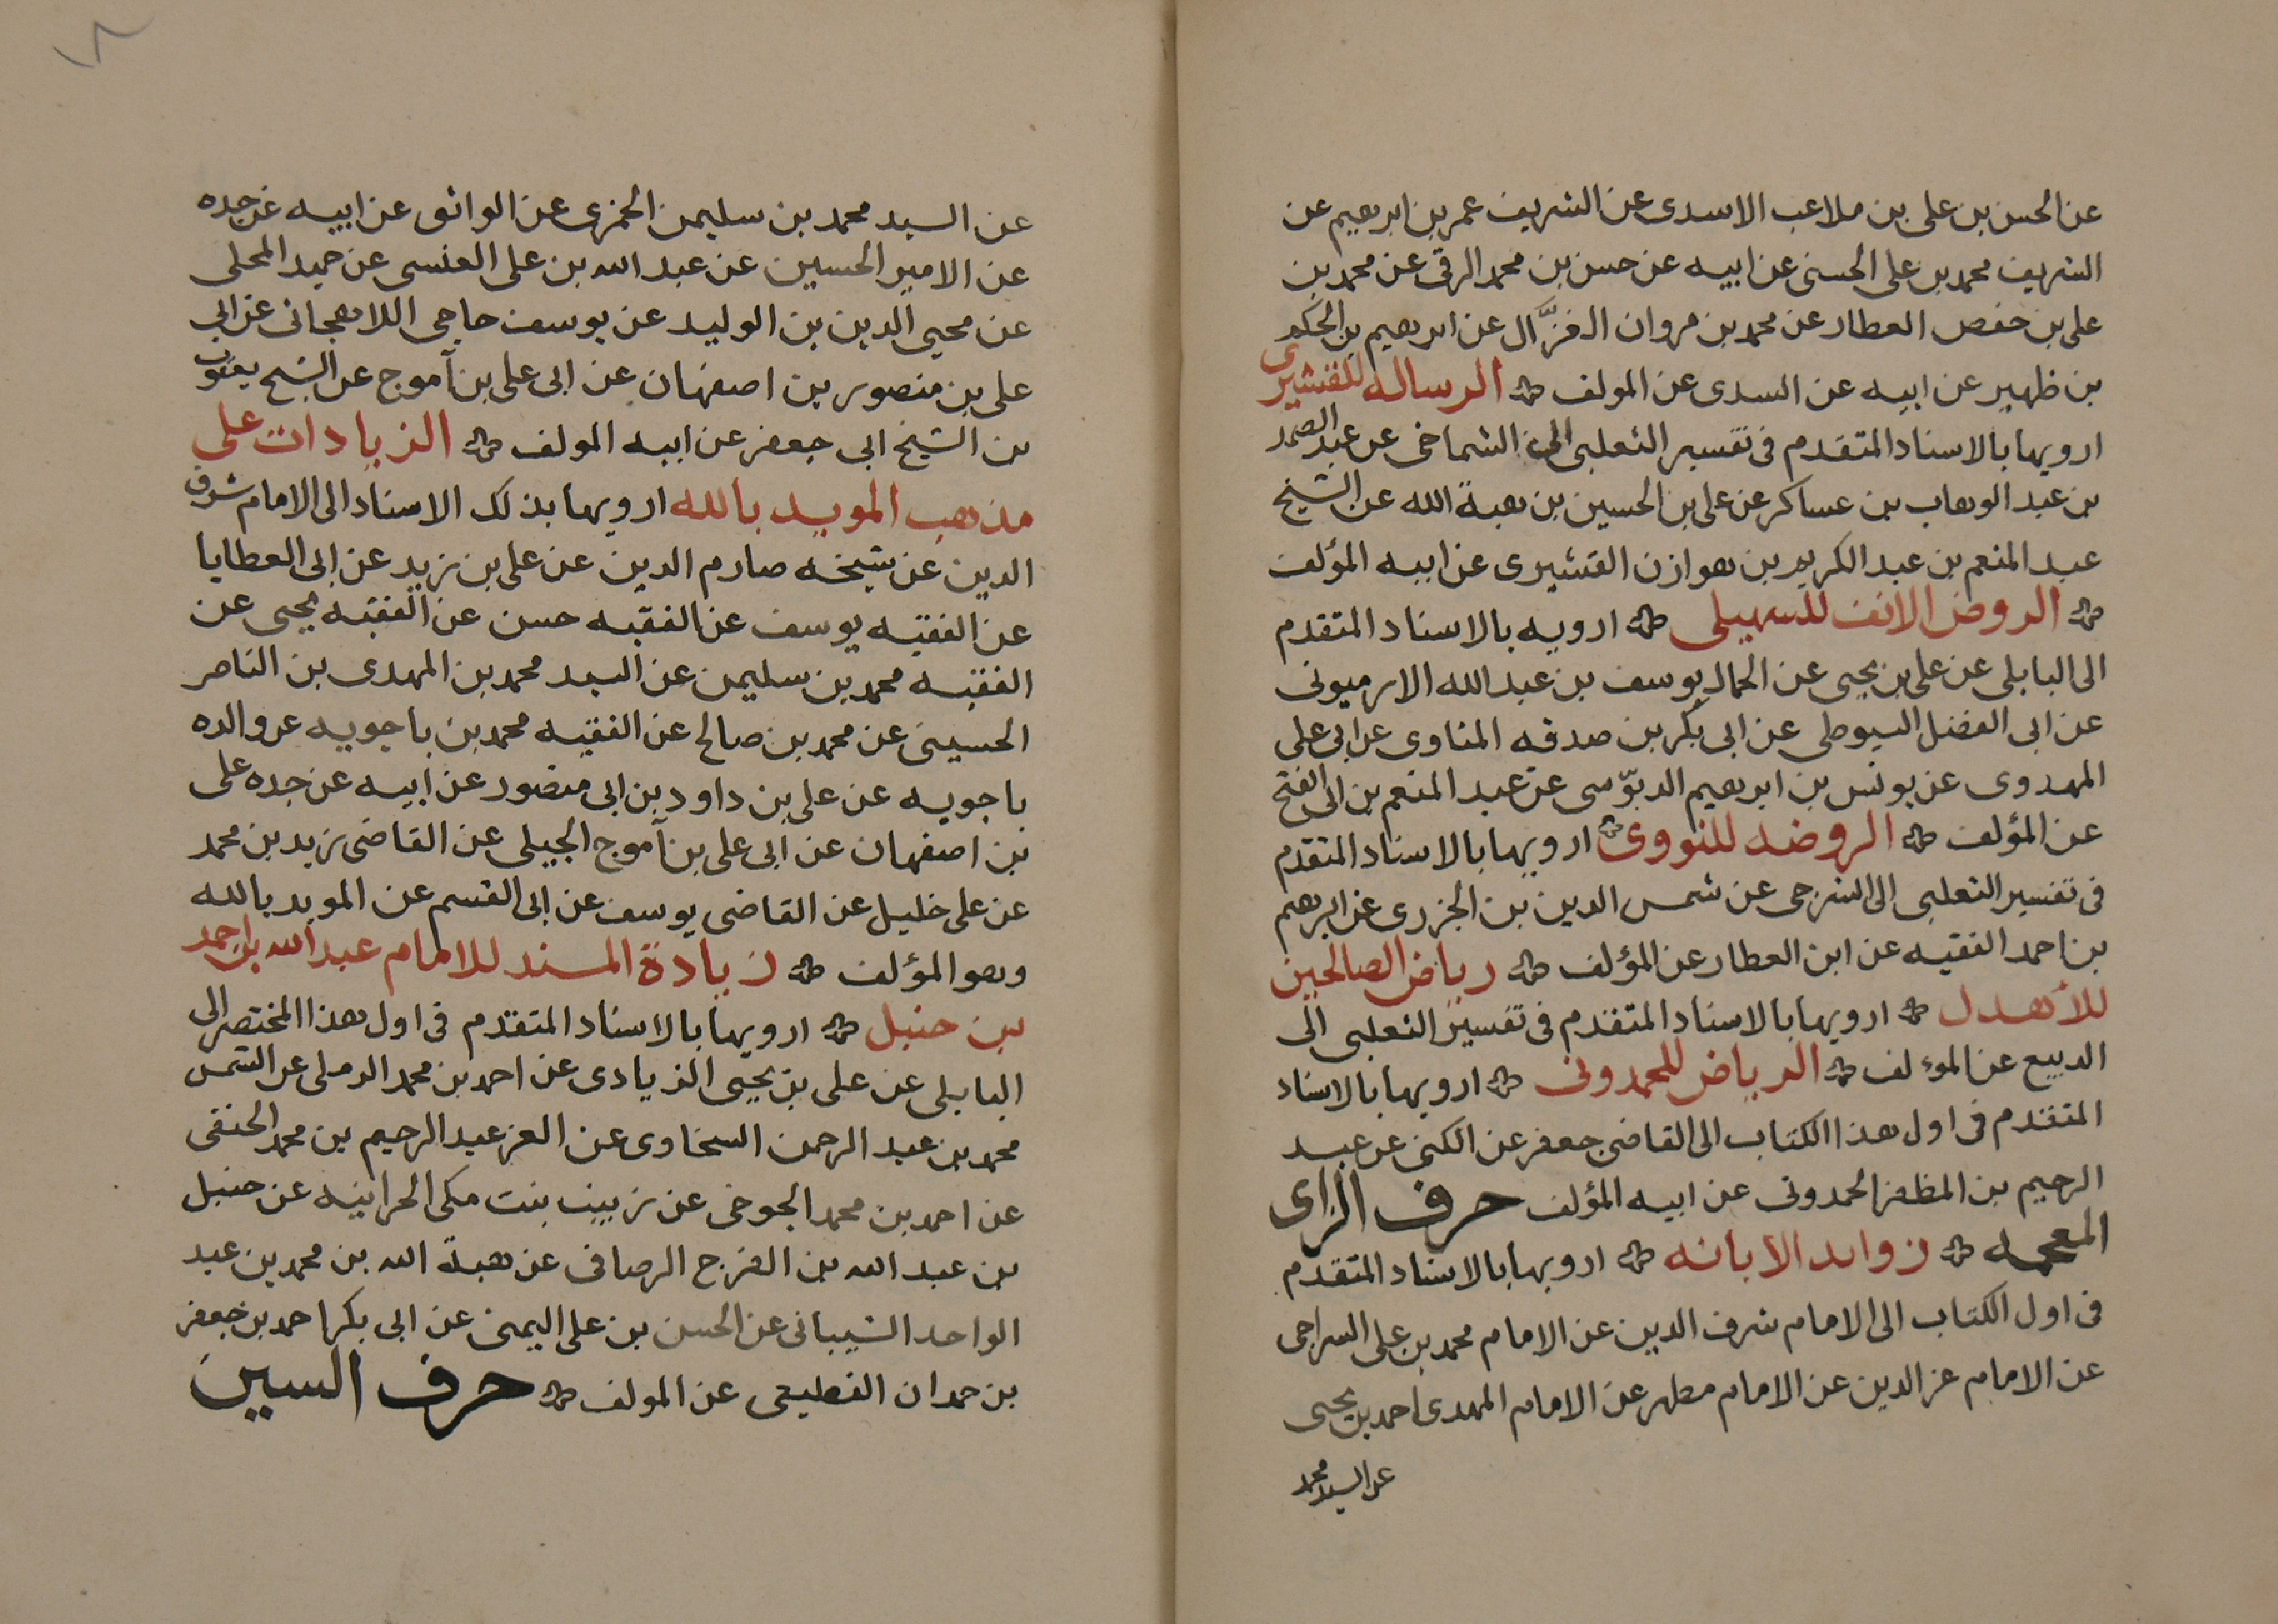 عن الحسن بن على بن ملاعب الاسدى عن الشريف عمر بن ابرهيم عن
الشريف محمد بن على الحسنى عن ابيه عن حسن بن محمد الرقى عن محمد بن
على بن حفص العطار عن محمد بن مروان الغزّال عن ابرهيم بن الحكم
بن ظهير عن ابيه عن السدى عن المولف الرساله للقشيرى
ارويها بالاسناد المتقدم فى تفسير الثعلبى الى الشماخى عن عبد الصمد
بن عبد الوهاب بن عساكر عن على بن الحسين بن هبة الله عن الشيخ
عبد المنعم بن عبد الكريم بن هوازن القشيرى عن ابيه المؤلف
الروض الانف للسهيلى ارويه بالاسناد المتقدم
الى البابلى عن على بن يحيى عن الجمال يوسف بن عبد الله الارميونى
عن ابى الفضل السيوطى عن ابى بكر بن صدقه المناوى عن ابى على
المهدوى عن يونس بن ابرهيم الدبوّسى عن عبد المنعم بن ابى الفتح
عن المؤلف الروضه للنووى ارويها بالاسناد المتقدم
فى تفسير الثعلبى الى الشرجى عن شمس الدين بن الجزرى عن ابرهيم
بن احمد الفقيه عن ابن العطار عن المؤلف رياض الصالحين
للأهدل ارويها بالاسناد المتقدم فى تفسير الثعلبى الى
الديبع عن الموءلف الرياض للحمدونى ارويها بالاسناد
المتقدم فى اول هذا الكتاب الى القاضى جعفر عن الكنى عن عبد
الرحيم بن المظفر الحمدونى عن ابيه المؤلف حرف الزاى
المعجمه زوايد الابانه ارويها بالاسناد المتقدم
فى اول الكتاب الى الامام شرف الدين عن الامام محمد بن على السراجى
عن الامام عز الدين عن الامام مطهر عن الامام المهدى احمد بن يحيى
عن السيد محمد
عن السيد محمد بن سليمن الحمزى عن الواثق عن ابيه عن جده
عن الامير الحسين عن عبد الله بن على العنسى عن حميد المحلى
عن محيى الدين بن الوليد عن يوسف حاجى اللاهجانى عن ابى
على بن منصور بن اصفهان عن ابى على بن آموج عن الشيخ يعقوب
بن الشيخ ابى جعفر عن ابيه المولف الزيادات على
مذهب المويد بالله ارويها بذلك الاسناد الى الامام شرف
الدين عن شيخه صارم الدين عن على بن زيد عن ابى العطايا
عن الفقيه يوسف عن الفقيه حسن عن الفقيه يحيى عن
الفقيه محمد بن سليمن عن السيد محمد بن المهدى بن الناصر
الحسينى عن محمد بن صالح عن الفقيه محمد بن باجويه عن والده
باجويه عن على بن داود بن ابى منصور عن ابيه عن جده على
بن اصفهان عن ابى على بن آموج الجيلى عن القاضى زيد بن محمد
عن على خليل عن القاضى يوسف عن ابى القسم عن المويد بالله
وهو المؤلف زيادة المسند للامام عبد الله بن احمد
بن حنبل ارويها بالاسناد المتقدم فى اول هذا المختصر الى
البابلى عن على بن يحيى الزيادى عن احمد بن محمد الرملى عن الشمس
محمد بن عبد الرحمن السخاوى عن العز عبد الرحيم بن محمد الحنفى
عن احمد بن محمد الجوخى عن زينب بنت مكى الحرانيه عن حنبل
بن عبد الله بن الفرج الرصافى عن هبة الله بن محمد بن عبد
الواحد الشيبانى عن الحسن بن على اليمنى عن ابى بكر احمد بن جعفر
بن حمدان القطيعى عن المولف حرف السين